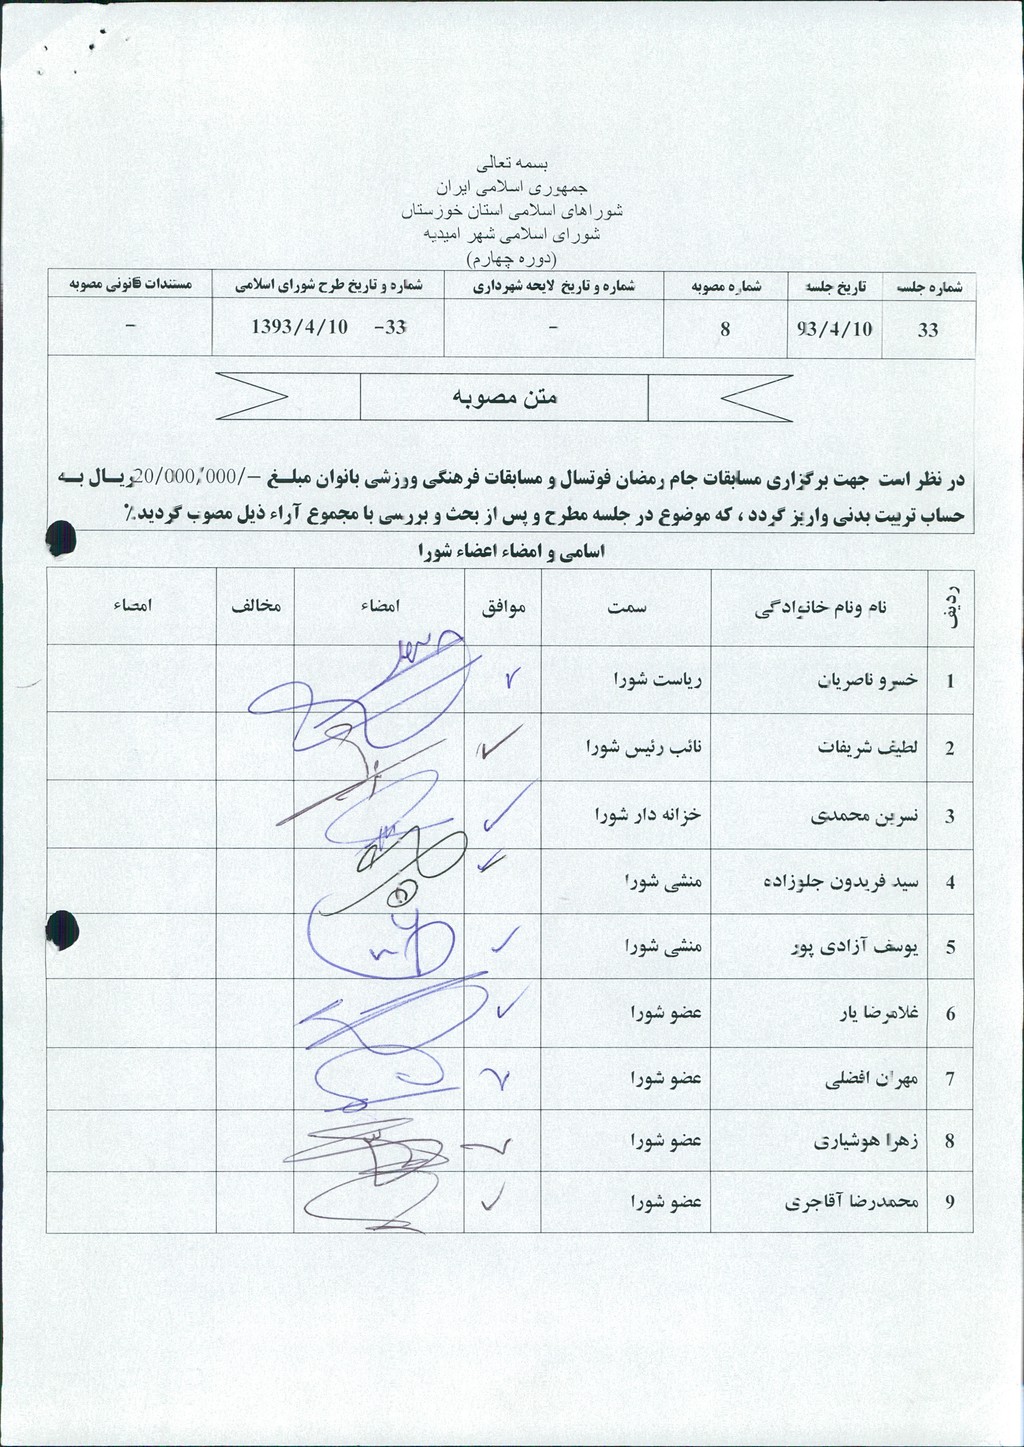 بسمه تعالی
جمهوری اسلامی ایران
شوراهای اسلامی استان خوزستان
شورای اسلامی شهر امیدیه
(دوره چهارم)
شماره جلسه تاریخ جلسه شماره مصوبه شماره و تاریخ لایحه شهرداری شماره و تاریخ طرح شورای اسلامی مستندات قانونی مصوبه
33 93/4/10 8 – 33- 1393/4/10 –
متن مصوبه
در نظر است جهت برگزاری مسابقات جام رمضان فوتسال و مسابقات فرهنگی ورزشی بانوان مبلغ –/20/000/000ریال به
حساب تربیت بدنی واریز گردد ، که موضوع در جلسه مطرح و پس از بحث و بررسی با مجموع آراء ذیل مصوب گردید.٪
اسامی و امضاء اعضاء شورا
ردیف نام ونام خانوادگی سمت موافق امضاء مخالف امضاء
1 خسرو ناصریان ریاست شورا ✓
2 لطیف شریفات نائب رئیس شورا ✓
3 نسرین محمدی خزانه دار شورا ✓
4 سید فریدون جلوزاده منشی شورا ✓
5 یوسف آزادی پور منشی شورا ✓
6 غلامرضا یار عضو شورا ✓
7 مهران افضلی عضو شورا ✓
8 زهرا هوشیاری عضو شورا ✓
9 محمدرضا آقاجری عضو شورا ✓